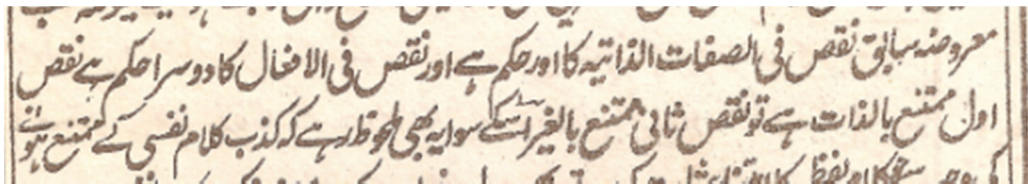 معروضہ سابق نقص فی الصفات الذاتیہ کا اور حکم ہے اور نقص فی الافعال کا دوسرا حکم ہے نقص
اول ممتنع بالذات ہے تو نقص ثانی ممتنع بالغیر اسکے سوا یہ بھی ملحوظ رہے کہ کذب کلام نفسی کے ممتنع ہونے